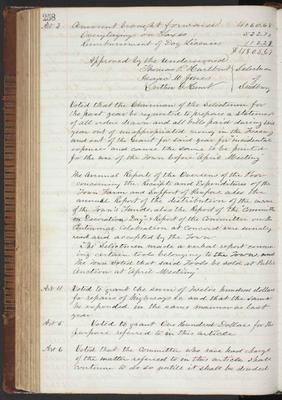 258
Art 3 Amount brought forward
Overlaying on Taxes
Reimbursement of Dog Licenses
Approved by the Undersigned
Thomas P. Hurlbut Selectmen
George H. Jones of
Sudbury
Voted that the Chairman of the Selectmen for
the past year be requested to prepare a statement
of all orders drawn and all bills paid during said
year out of unappropriated money in the Treasury
and out of the Grant for said year for incidental
expenses and cause the same to be printed
for the use of the Town before April Meeting
The Annual Reports of the Overseers of the Poor
concerning the Receipts and Expenditures of the
Town Farm and Support of Paupers also the
annual Report of the distribution of the income
of the Town's Funds also the Report of the Committee
on Decoration Day & Report of the Committee on the
Centennial Celebration at Concord were severally
read and accepted by the Town
The Selectmen made a verbal report concern
ing certain tools belonging to the Town and
the Town voted that said Tools be sold at Public
Auction at April Meeting
Art 4 Voted to grant the sum of Twelve hundred dollars
for repairs of Highways &c and that the same
be expended in the same manner as last
year
Art 5 Voted to grant One Hundred Dollars for the
purpose referred to in this article
Art 6 Voted that the Committee who have had charge
of the matter referred to in this article shall
continue to do so until it shall be decided